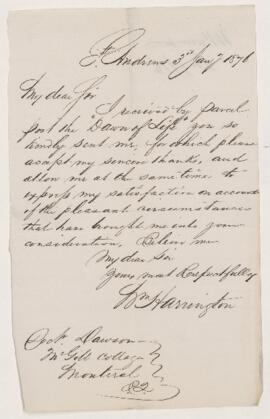 St. Andrews 3d Jany 1876
My dear Sir
I received by parcel
post the "Dawn of Life" you so
kindly sent me, for which please
accept my sincere thanks, and
allow me at the same time to
express my satisfaction on account
of the pleasant circumstances
that has brought me into your
consideration, Believe me
My dear Sir
Yours most Respectfully
Wm Harrington
Dawson
McGill College
Montreal
P.Q.